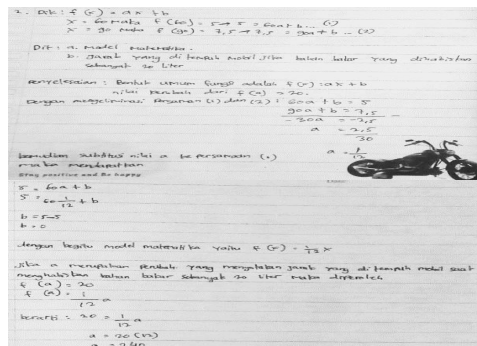 2. Dik : f (x) = ax + b
x = 60 maka f (60) = 5 → 5 = 60a + b ... (1)
x = 90 maka f (90) = 7,5 → 7,5 = 90a + b ... (2)
Dit : a. Model Matematika.
b. Jarak yang ditempuh mobil jika bahan bakar yang dihabiskan
sebanyak 20 liter
Penyelesaian : Bentuk umum fungsi adalah f (x) : ax + b
nilai peubah dari f (x) = 20.
Dengan mengeliminasi Persamaan (1) dan (2) : 60a + b = 5
90a + b = 7,5 -
-30a = -2,5
a = 2,5
30
a = 1
12
kemudian subtitusi nilai a ke persamaan (1)
maka mendapatkan
Stay positive and Be happy
5 = 60a + b
5 = 60 1/12 + b
b = 5-5
b = 0
dengan begitu model matematika yaitu f (x) = 1/12 x
Jika a merupakan peubah yang menyatakan jarak yang ditempuh mobil saat
menghabiskan bahan bakar sebanyak 20 liter maka diperoleh
f (a) = 20
f (a) = 1
12 a
berarti : 20 = 1
12 a
a = 20 (12)
a = 240